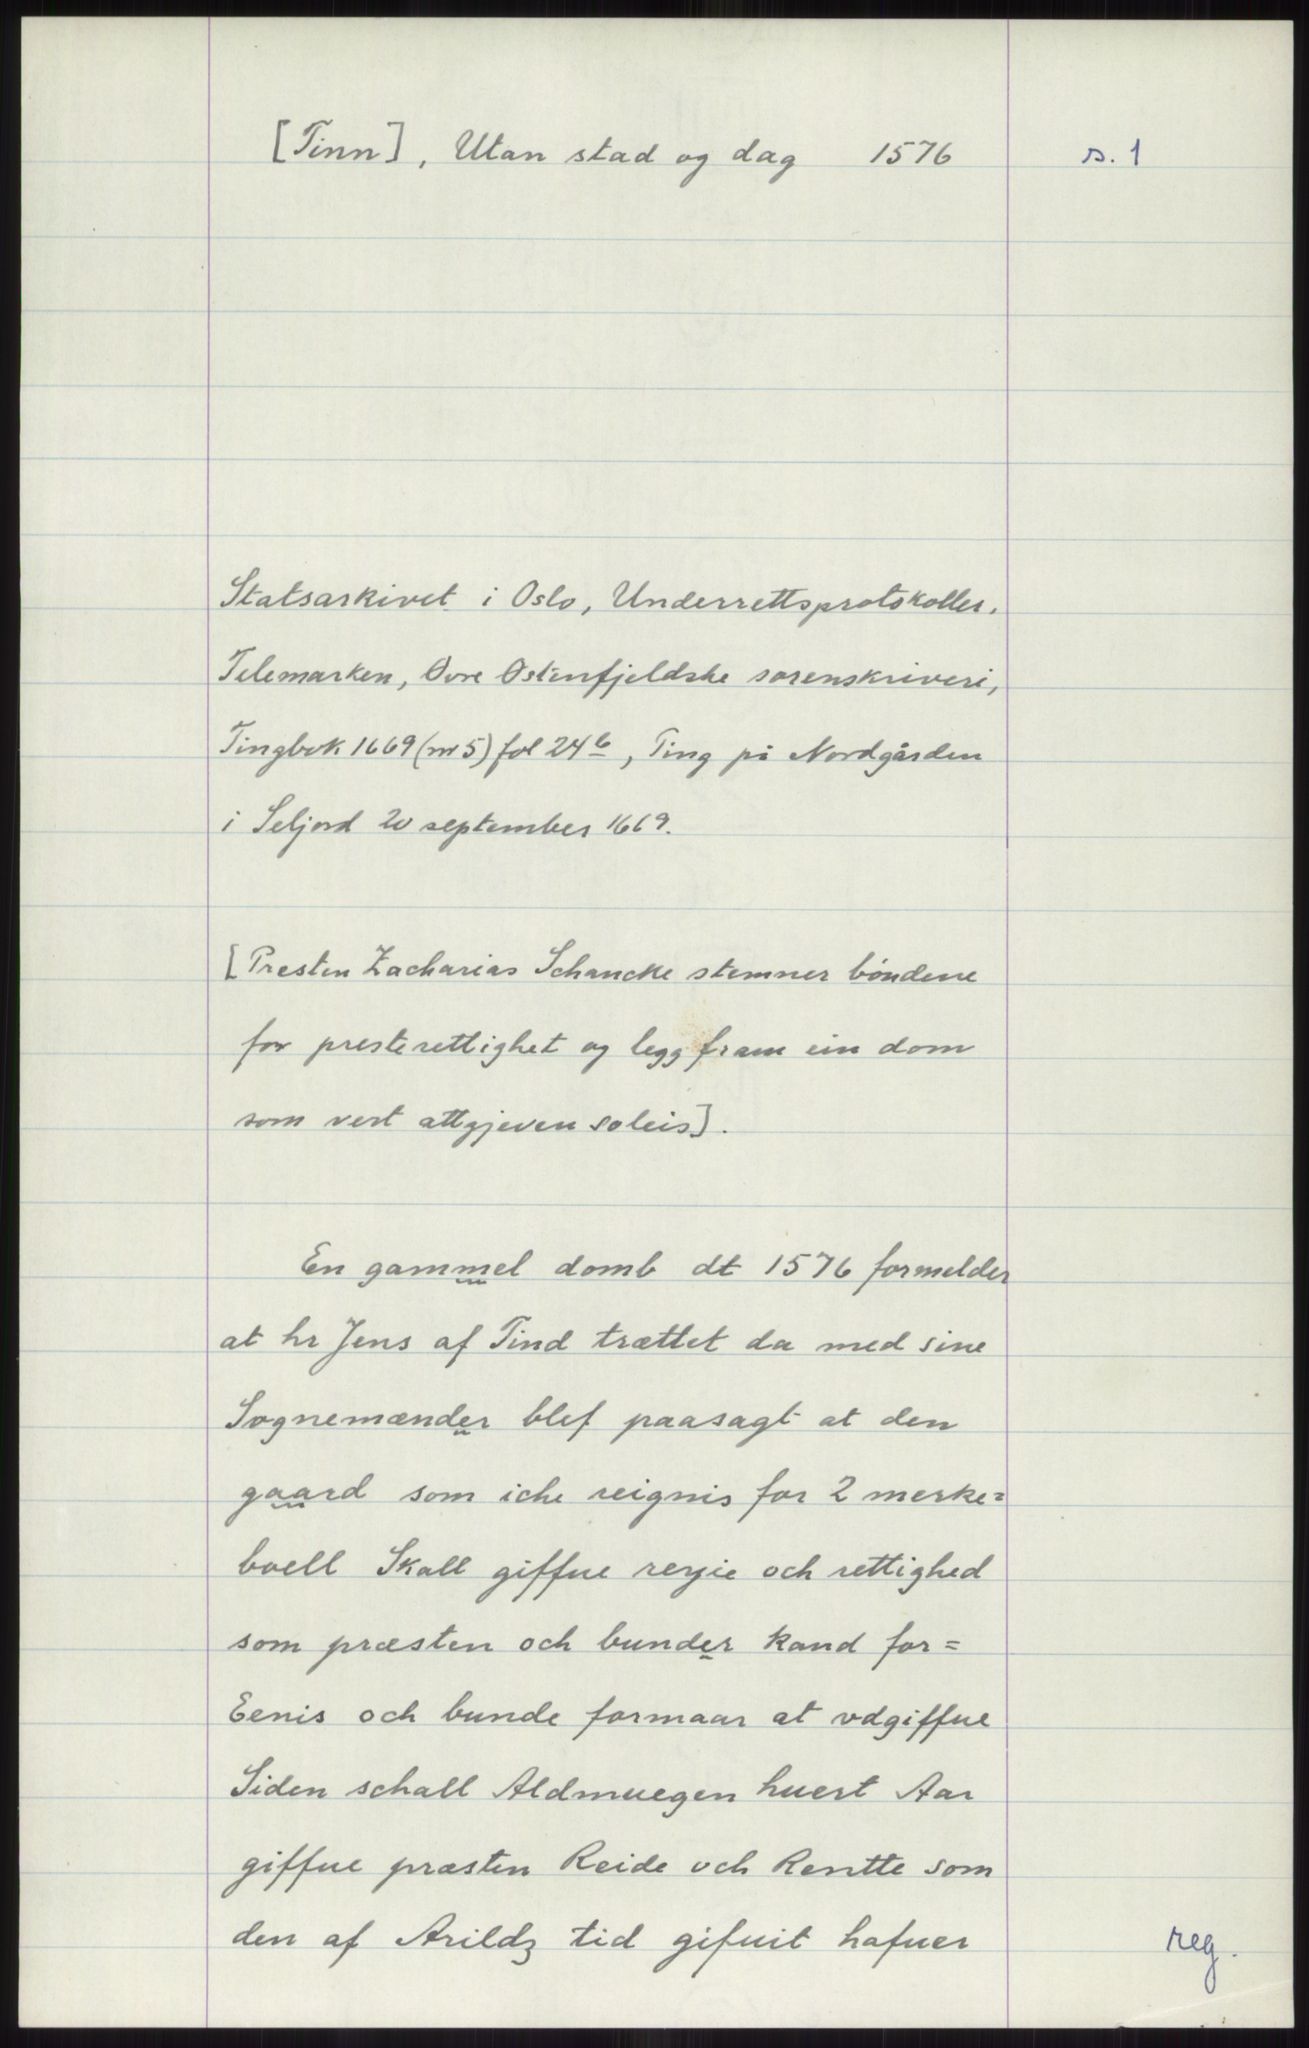 [Tinn], Utan stad og dag 1576 s. 1
Statsarkivet i Oslo, Underrettsprotokoller.
Telemarken, Øvre Østenfjeldske sorenskriveri,
Tingbok 1669 (nr 5) fol 24b, Ting på Nordgården
i Seljord 20 september 1669.
[Presten Zacharias Schancke stemner bøndene
for presterettighet og legg fram ein dom
som vert attgjeven soleis].
En gammel domb dt 1576 formelder
at hr Jens af Tind trættet da med sine
Sognemænder blef paasagt at den
gaard som iche reignis for 2 merke=
boell Skall giffue resie och rettighed
som præsten och bunder kand for=
Eenis och bunde formaar at vdgiffue
Siden schall Aldmuegen huert Aar
giffue præsten Reide och Rentte som
den af Arildz tid gifuit hafuer
reg.